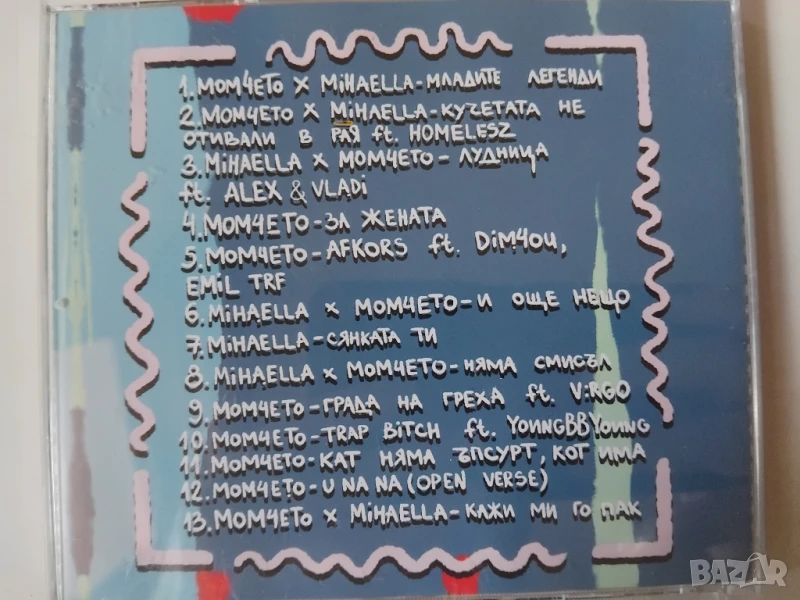 1. МОМЧЕТО X MiHAELLA-МЛАДИТЕ ЛЕГЕНДИ
2. МОМЧЕТО X MiHAELLA-КУЧЕТАТА НЕ
ОТИВАЛИ В РАЯ ft. HOMELESZ
3. MiHAELLA X МОМЧЕТО-ЛУДНИЦА
ft. ALEX & VLADi
4. МОМЧЕТО-ЗА ЖЕНАТА
5. МОМЧЕТО-AFKORS ft. DiM4OU,
EMiL TRF
6. MiHAELLA X МОМЧЕТО-И ОЩЕ НЕЩО
7. MiHAELLA-СЯНКАТА ТИ
8. MiHAELLA X МОМЧЕТО-НЯМА СМИСЪЛ
9. МОМЧЕТО-ГРАДА НА ГРЕХА ft. V:RGO
10. МОМЧЕТО-TRAP BiTCH ft. YOUNGBBYOUNG
11. МОМЧЕТО-КАТ НЯМА ЪПСУРТ, КОТ ИМА
12. МОМЧЕТО-U NA NA (OPEN VERSE)
13. МОМЧЕТО X MiHAELLA-КАЖИ МИ ГО ПАК
BAZAR